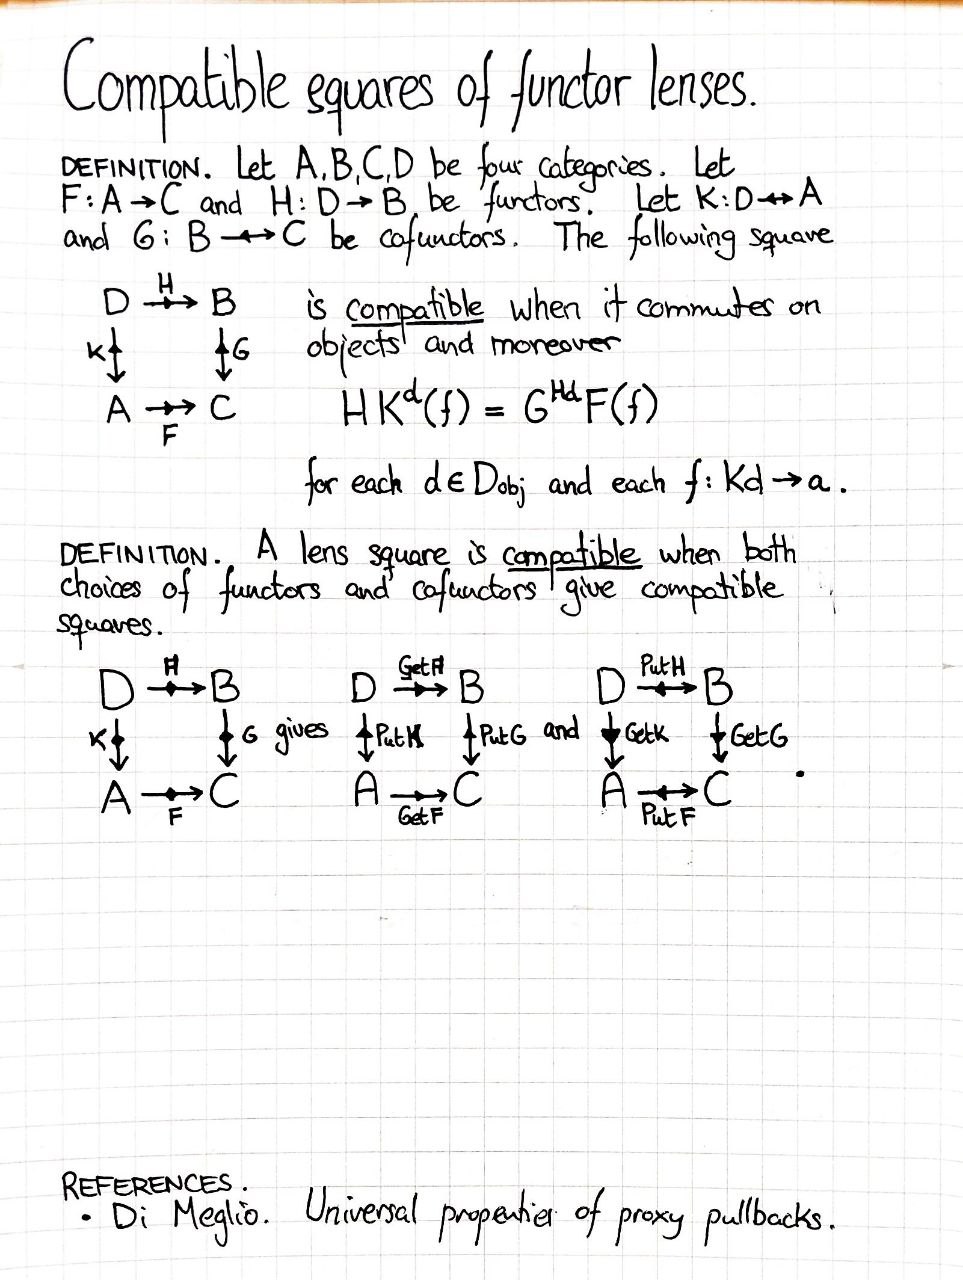 Compatible squares of functor lenses.
DEFINITION. Let A,B,C,D be four categories. Let
F: A → C and H: D → B be functors. Let K: D ↔ A
and G: B ↔ C be cofunctors. The following square
H
D → B
is compatible when it commutes on
K G
objects and moreover
A → C
F
HK^d(f) = G^{Hd}F(f)
for each d ∈ Dobj and each f: Kd → a.
DEFINITION. A lens square is compatible when both
choices of functors and cofunctors give compatible
squares.
H GetH PutH
D → B D → B D ↔ B
K G gives PutK PutG and GetK GetG
A → C A → C A ↔ C .
F GetF PutF
REFERENCES.
• Di Meglio. Universal properties of proxy pullbacks.